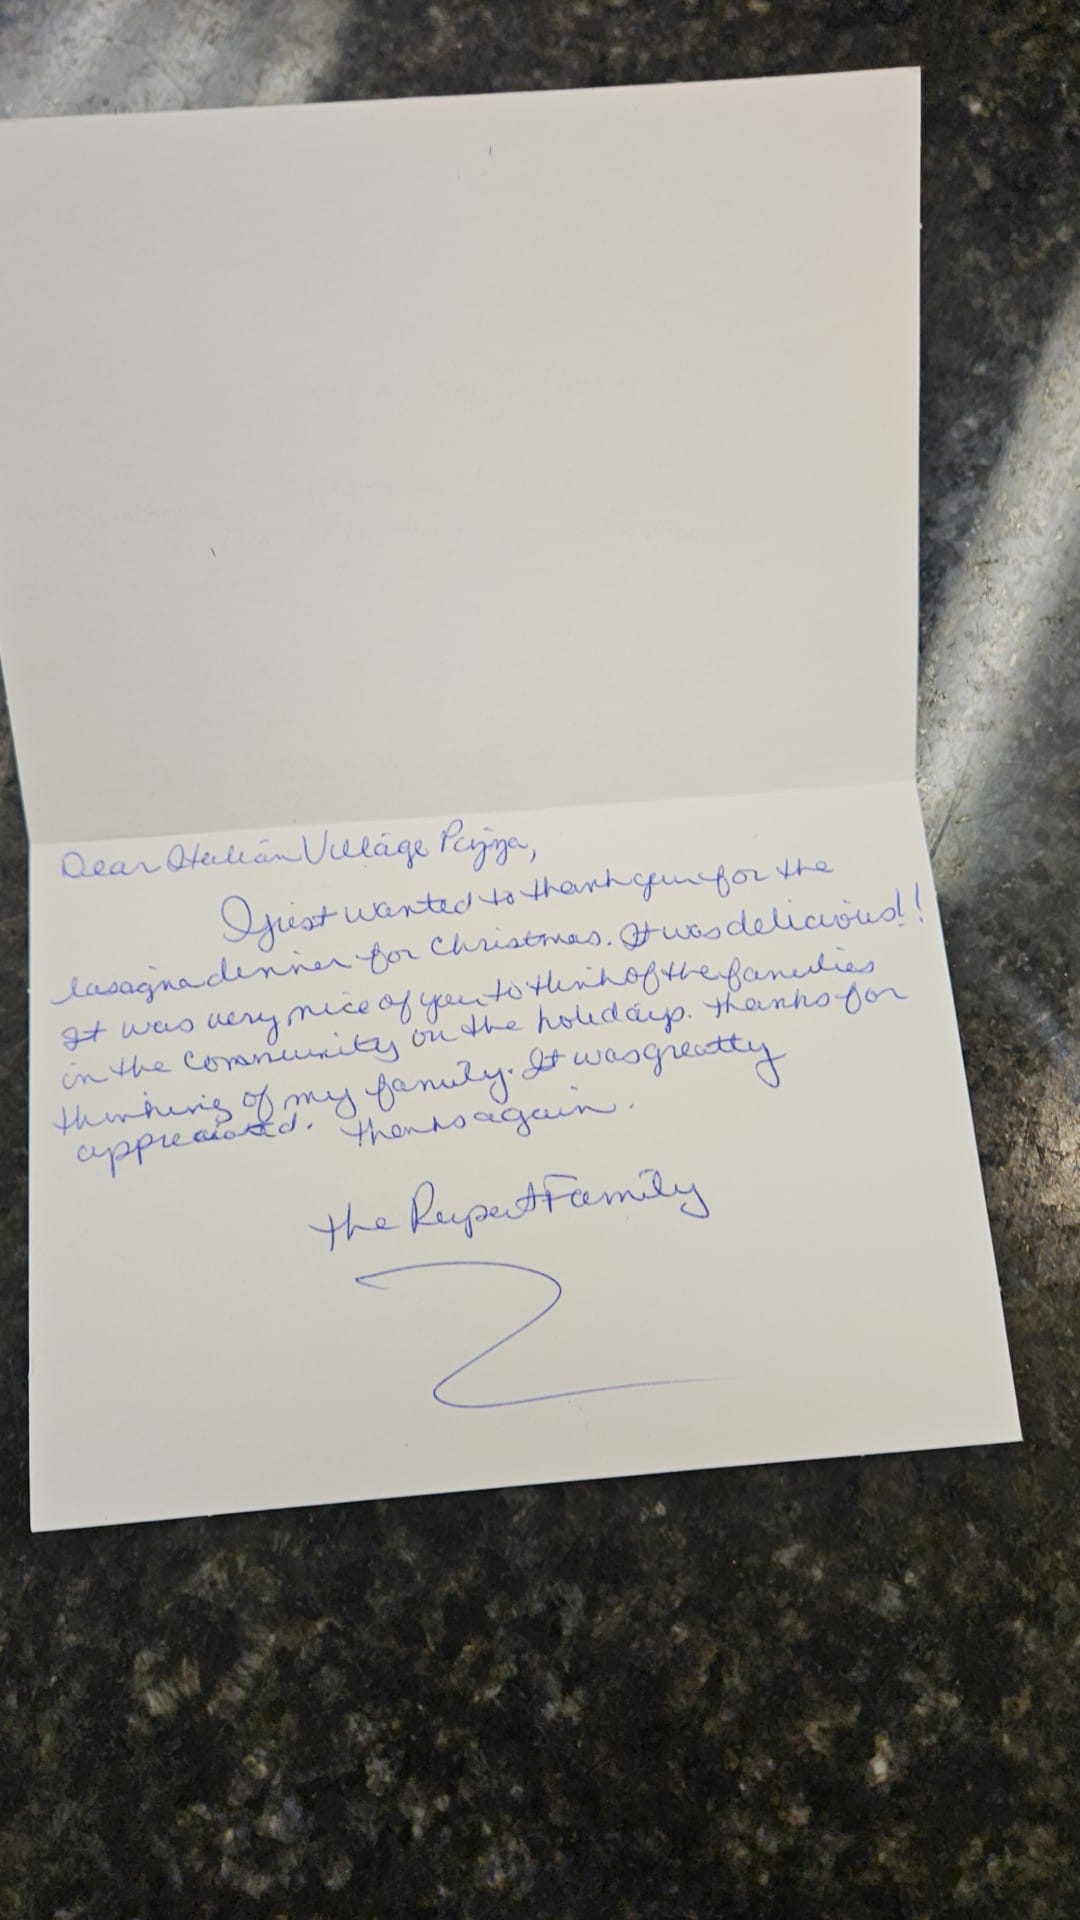 Dear Italian Village Pizza,
I just wanted to thank you for the
lasagna dinner for Christmas. It was delicious!!
It was very nice of you to think of the families
in the community on the holidays. Thanks for
thinking of my family. It was greatly
appreciated. Thanks again.
the Rupert Family